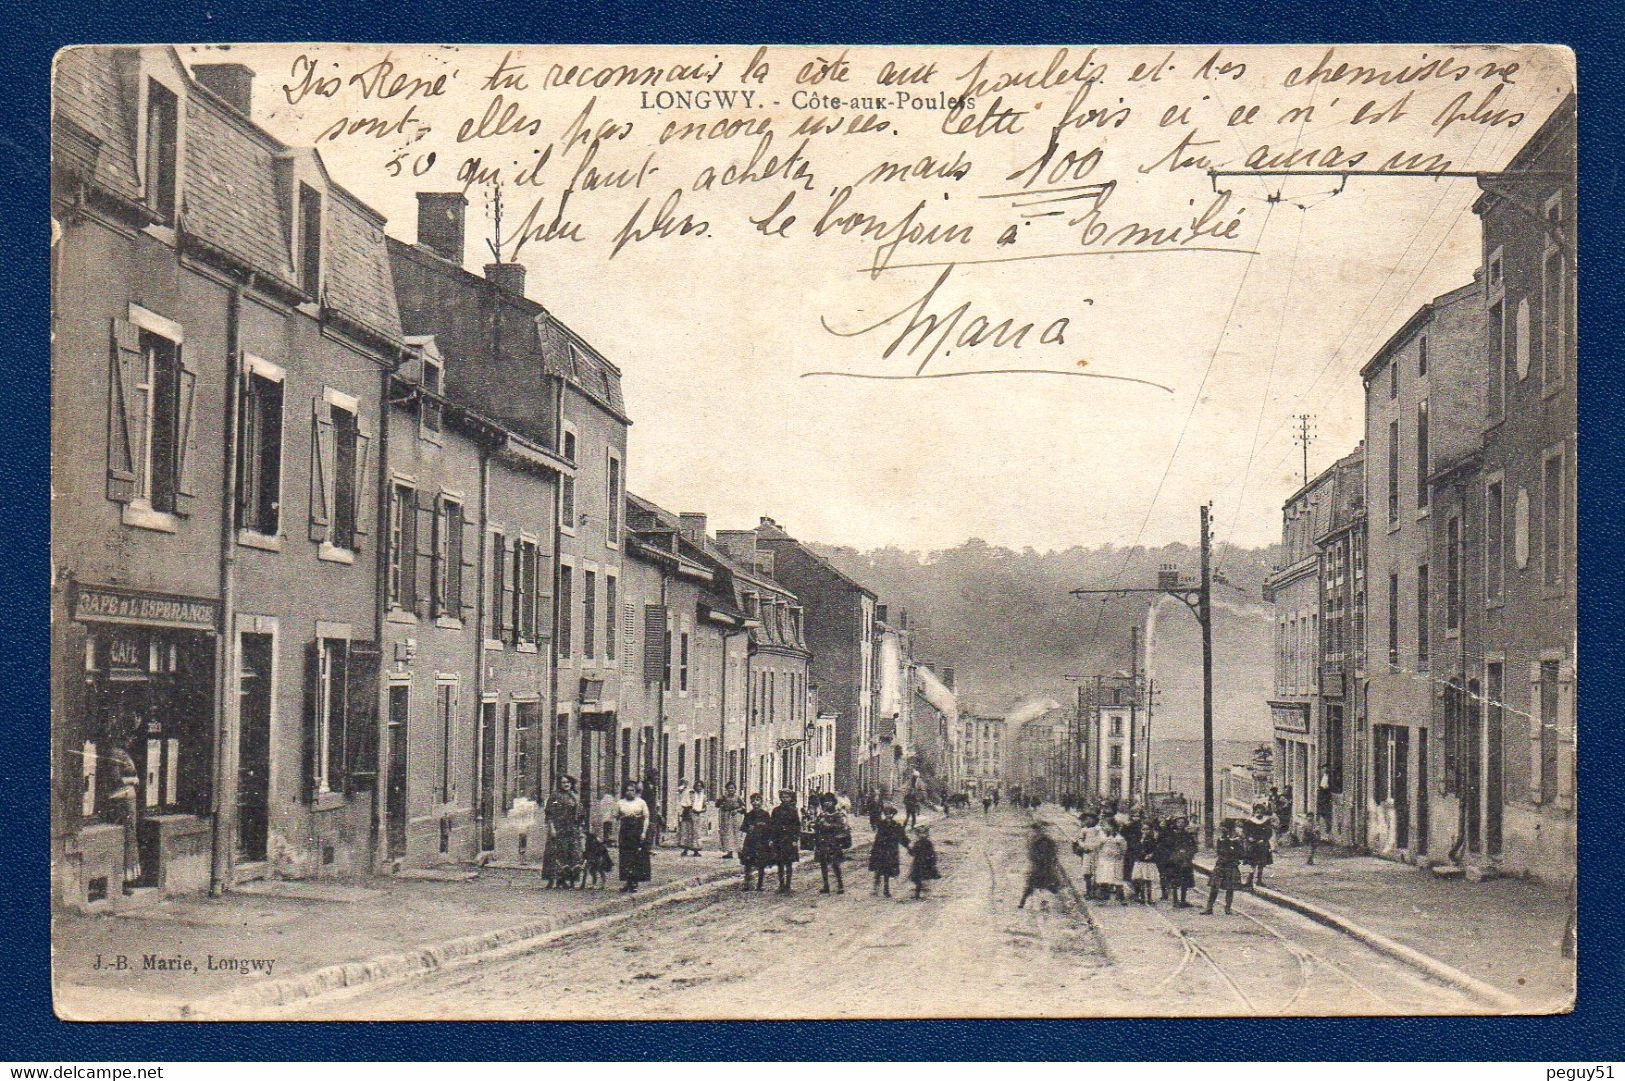 Dis René tu reconnais la côte aux poulets. et tes chemises ne
LONGWY. - Côte-aux-Poulets
sont-elles pas encore usées. Cette fois ci ce n'est plus
50 qu'il faut acheter, mais 100 tu auras un
peu plus. Le bonjour à Emilie
Maria
CAFE DE L'ESPERANCE
CAFÉ
J.-B. Marie, Longwy
peguy51